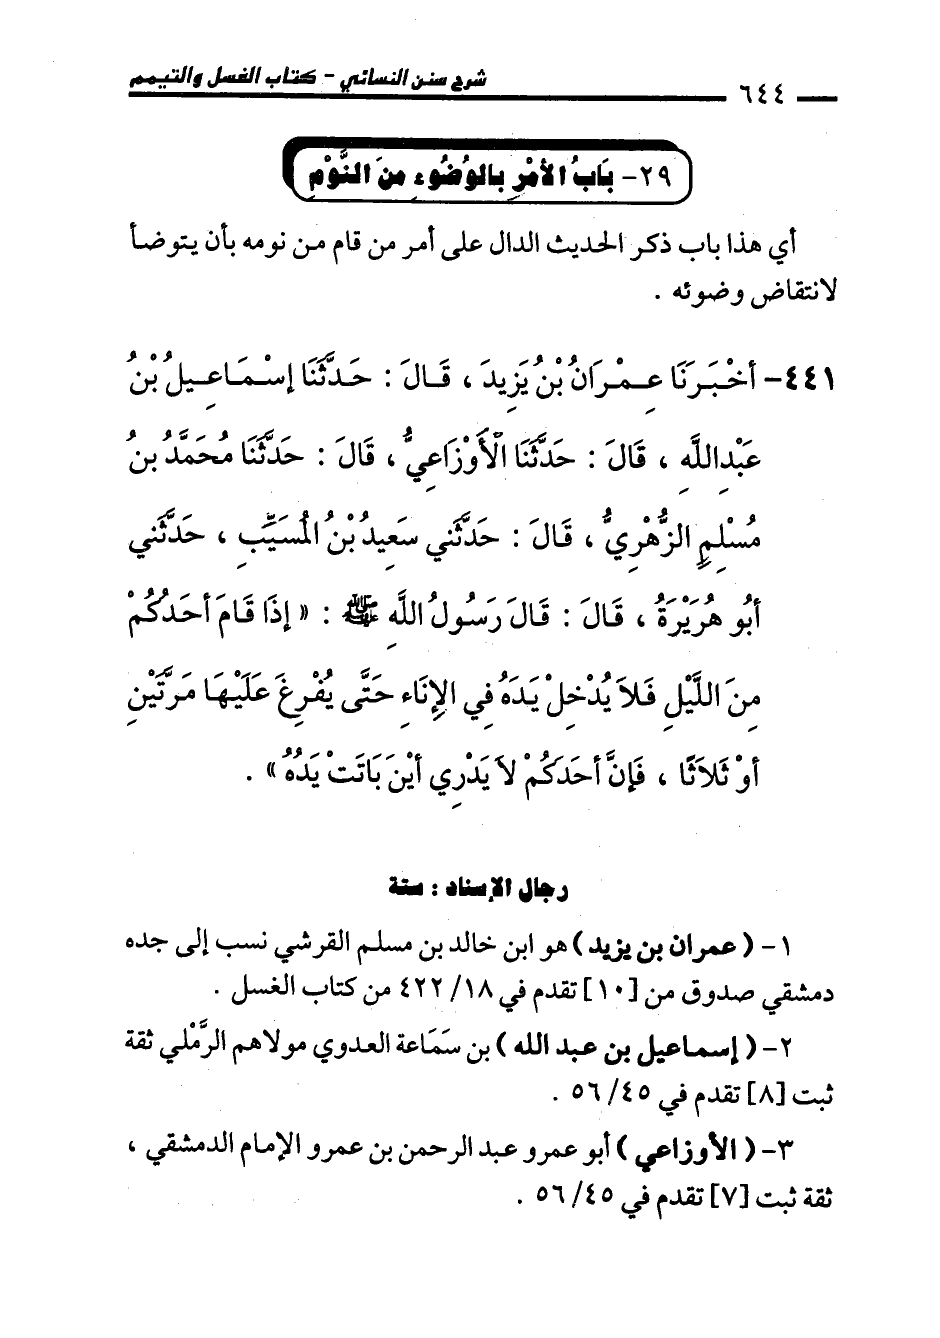 شرح سنن النسائي - كتاب الغسل والتيمم
٦٤٤
٢٩- بَابُ الأَمْرِ بِالْوُضُوءِ مِنَ النَّوْمِ
أي هذا باب ذكر الحديث الدال على أمر من قام من نومه بأن يتوضأ
لانتقاض وضوئه .
٤٤١- أَخْبَرَنَا عِمْرَانُ بْنُ يَزِيدَ ، قَالَ : حَدَّثَنَا إِسْمَاعِيلُ بْنُ
عَبْدِاللَّهِ ، قَالَ : حَدَّثَنَا الْأَوْزَاعِيُّ ، قَالَ : حَدَّثَنَا مُحَمَّدُ بْنُ
مُسْلِمٍ الزُّهْرِيُّ ، قَالَ : حَدَّثَنِي سَعِيدُ بْنُ الْمُسَيِّبِ ، حَدَّثَنِي
أَبُو هُرَيْرَةَ ، قَالَ : قَالَ رَسُولُ اللَّهِ ﷺ : « إِذَا قَامَ أَحَدُكُمْ
مِنَ اللَّيْلِ فَلاَ يُدْخِلْ يَدَهُ فِي الإِنَاءِ حَتَّى يُفْرِغَ عَلَيْهَا مَرَّتَيْنِ
أَوْ ثَلاَثًا ، فَإِنَّ أَحَدَكُمْ لاَ يَدْرِي أَيْنَ بَاتَتْ يَدُهُ » .
رجال الإسناد : ستة
١- ( عمران بن يزيد ) هو ابن خالد بن مسلم القرشي نسب إلى جده
دمشقي صدوق من [١٠] تقدم في ١٨/ ٤٢٢ من كتاب الغسل .
٢- ( إسماعيل بن عبد الله ) بن سَمَاعة العدوي مولاهم الرَّمْلي ثقة
ثبت [٨] تقدم في ٤٥/ ٥٦ .
٣- ( الأوزاعي ) أبو عمرو عبد الرحمن بن عمرو الإمام الدمشقي ،
ثقة ثبت [٧] تقدم في ٤٥/ ٥٦ .